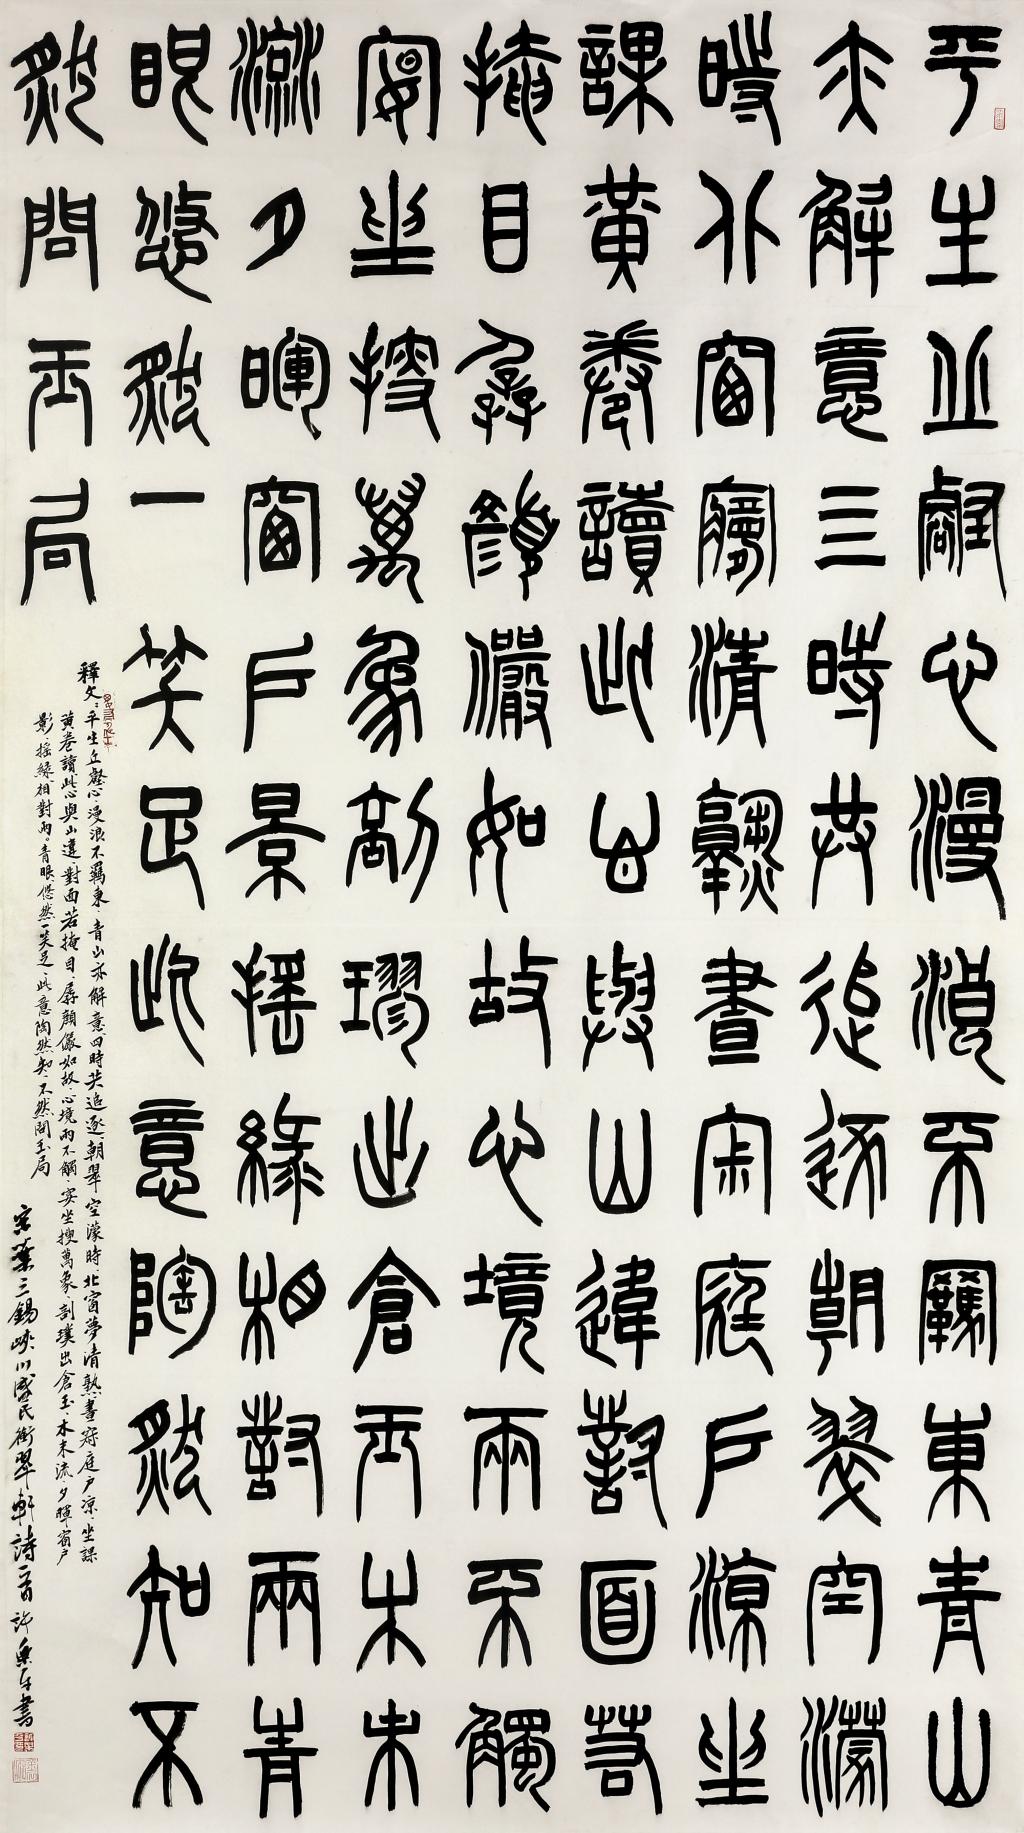 平生丘壑心漫浪不羈東青山
亦解意三時共追逐朝翠空濛
時北窗夢清熟晝寂庭戶涼坐
課黃卷讀此心與山違對面若
掩目孱顏儼如故心境兩不觸
宴坐搜萬象剖璆出倉玉木末
流夕暉窗戶景搖緣相對兩青
眼悠然一笑足此意陶然知不
然問玉局
釋文：平生丘壑心，漫浪不羈東，青山亦解意，四時共追逐，朝翠空濛時，北窗夢清熟，晝寂庭戶涼，坐課
黃卷讀，此心與山違，對面若掩目，孱顏儼如故，心境兩不觸，宴坐搜萬象，剖璞出倉玉，木末流夕暉，窗戶
影搖綠，相對兩青眼，悠然一笑足，此意陶然知，不然問玉局
宋葉三錫峽川盛民衛翠軒詩一首 許 書